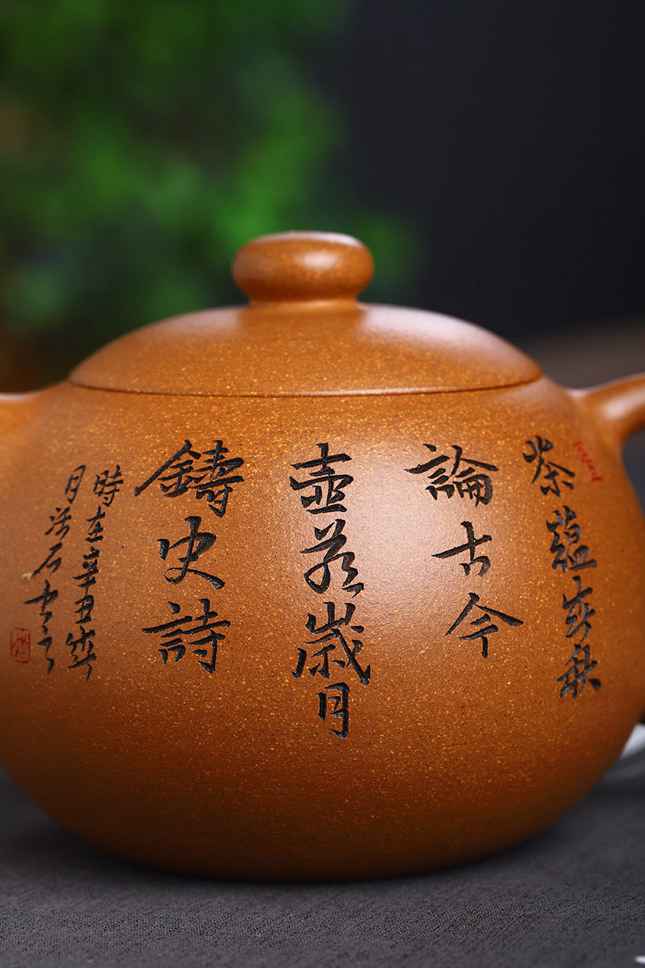 茶蘊春秋
論古今
壺藏歲月
鑄史詩
時在辛丑年
月浩石書之